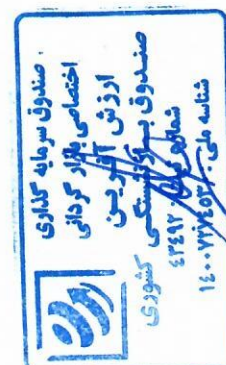 صندوق سرمایه گذاری
اختصاصی بازار گردانی
ارزش آفرین
صندوق بازنشستگی کشوری
شماره ثبت: ۴۳۴۹۲
شناسه ملی: